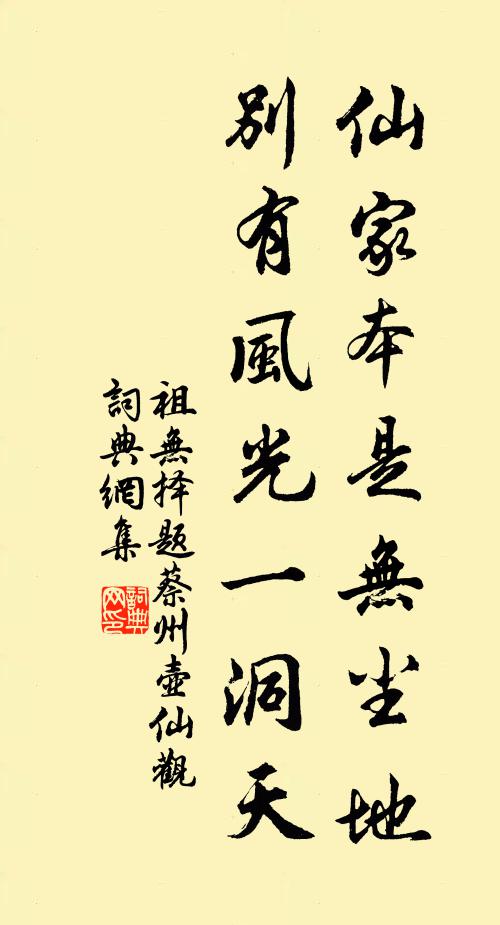 仙家本是無尘地
別有風光一洞天
祖無择题蔡州壺仙觀
詞典網集
詞典网印